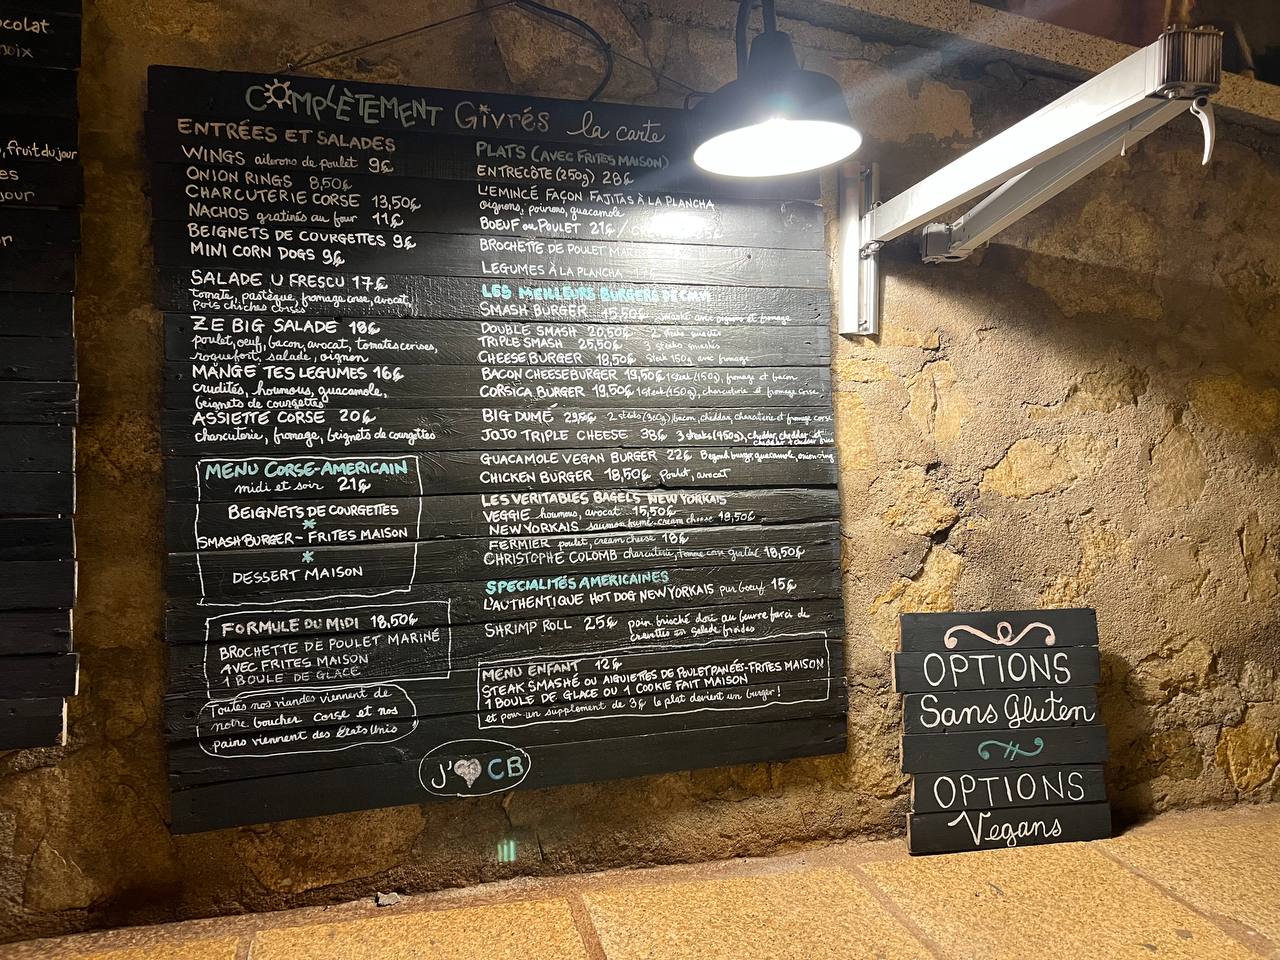 colat
noix
fruit du jour
jour
COMPLÈTEMENT Givrés la carte
ENTRÉES ET SALADES
WINGS ailerons de poulet 9€
ONION RINGS 8,50€
CHARCUTERIE CORSE 13,50€
NACHOS gratinés au four 11€
BEIGNETS DE COURGETTES 9€
MINI CORN DOGS 9€
SALADE U FRESCU 17€
tomate, pastèque, fromage corse, avocat,
pois chiches corses
ZE BIG SALADE 18€
poulet, oeuf, bacon, avocat, tomates cerises,
roquefort, salade, oignon
MANGE TES LEGUMES 16€
crudités, houmous, guacamole,
beignets de courgettes
ASSIETTE CORSE 20€
charcuterie, fromage, beignets de courgettes
MENU CORSE-AMERICAIN
midi et soir 21€
BEIGNETS DE COURGETTES
*
SMASH BURGER - FRITES MAISON
*
DESSERT MAISON
FORMULE DU MIDI 18,50€
BROCHETTE DE POULET MARINÉ
AVEC FRITES MAISON
1 BOULE DE GLACE
Toutes nos viandes viennent de
notre boucher corse et nos
pains viennent des États Unis
PLATS (AVEC FRITES MAISON)
ENTRECÔTE (250g) 28€
L'EMINCÉ FAÇON FAJITAS À LA PLANCHA
oignons, poivrons, guacamole
BOEUF ou POULET 21€ /
BROCHETTE DE POULET
LEGUMES À LA PLANCHA
LES MEILLEURS BURGERS DE
SMASH BURGER 15,50€ smashé avec oignons et fromage
DOUBLE SMASH 20,50€ 2 steaks smashés
TRIPLE SMASH 25,50€ 3 steaks smashés
CHEESE BURGER 18,50€ Steak 150g avec fromage
BACON CHEESEBURGER 19,50€ 1 steak (150g), fromage et bacon
CORSICA BURGER 19,50€ 1 steak (150g), charcuterie et fromage corse,
BIG DUMÉ 29,5€ 2 steaks (300g) bacon, cheddar, charcuterie et fromage corse
JOJO TRIPLE CHEESE 38€ 3 steaks (450g), cheddar, cheddar et
GUACAMOLE VEGAN BURGER 22€ Beyond burger, guacamole, onion ring
CHICKEN BURGER 18,50€ Poulet, avocat
LES VERITABLES BAGELS NEW YORKAIS
VEGGIE houmous, avocat 15,50€
NEW YORKAIS saumon fumé, cream cheese 18,50€
FERMIER poulet, cream cheese 18€
CHRISTOPHE COLOMB charcuterie, tomme corse grillée 18,50€
SPECIALITÉS AMERICAINES
L'AUTHENTIQUE HOT DOG NEW YORKAIS pur boeuf 15€
SHRIMP ROLL 25€ pain brioché doré au beurre farci de
crevettes en salade froides
MENU ENFANT 12€
STEAK SMASHÉ OU AIGUILETTES DE POULET PANÉES-FRITES MAISON
1 BOULE DE GLACE OU 1 COOKIE FAIT MAISON
et pour un supplement de 3€ le plat devient un burger !
J'♥ CB
OPTIONS
Sans Gluten
OPTIONS
Vegans